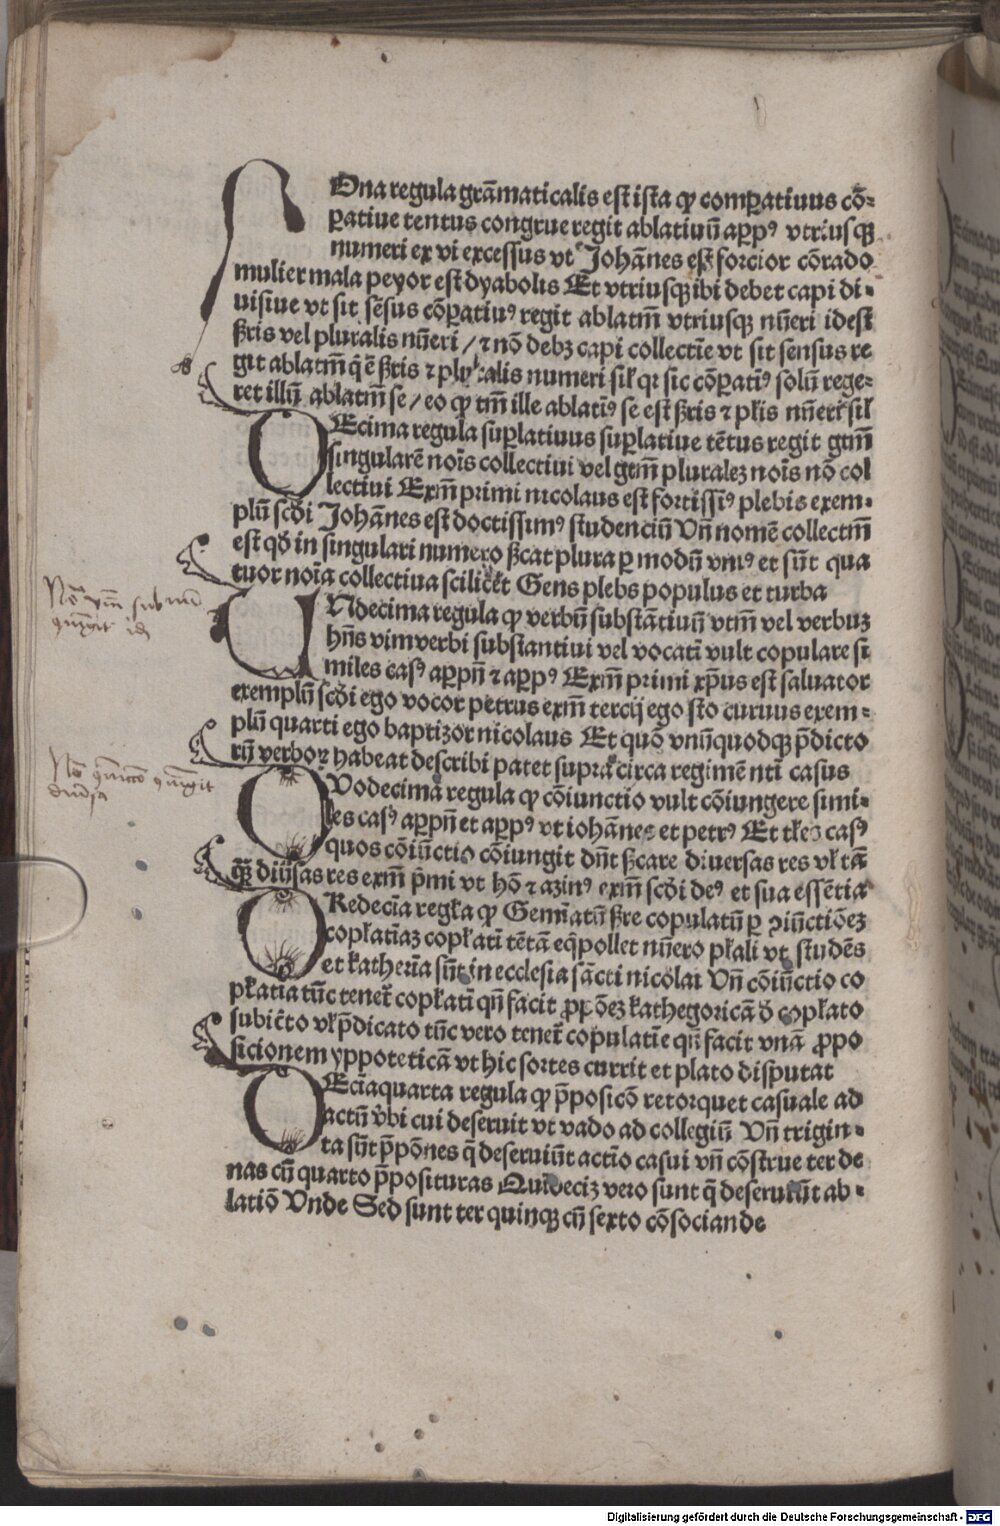 NOna regula grāmaticalis est ista ꝙ comꝑatiuus cō-
ꝑatiue tentus congrue regit ablatiuū aꝑpꝰ vtriusqꝫ
numeri ex vi excessus vt Johānes est forcior cōrado
mulier mala peyor est dyabolis Et vtriusqꝫ ibi debet capi di-
uisiue vt sit sēsus cōꝑatiuꝰ regit ablatm̄ vtriusqꝫ nūeri idest
ẞris vel pluralis nūeri / ⁊ nō debꝫ capi collectīe vt sit sensus re
git ablatm̄ q̄ ē ẞris ⁊ pluralis numeri sil' qꝛ sic cōꝑatiꝰ solū rege-
ret illū ablatm̄ se / eo ꝙ tm̄ ille ablatiꝰ se est ẞris ⁊ pl'is nūeri sil'
DEcima regula suꝑlatiuus suꝑlatiue tētus regit gtm̄
singularē noīs collectiui vel gtm̄ pluralez noīs nō col
lectiui Exm̄ primi nicolaus est fortissīꝰ plebis exem-
plū scd'i Johānes est doctissimꝰ studenciū Vn̄ nomē collectm̄
est qd' in singulari numero ẞcat plura ꝑ modū vniꝰ et sūt qua
tuor noīa collectiua scilicet Gens plebs populus et turba
VNdecima regula ꝙ verbū substātiuū vtm̄ vel verbuz
hn̄s vim verbi substantiui vel vocati vult copulare si
miles casꝰ aꝑpn̄ ⁊ aꝑpꝰ Exm̄ primi xp̄us est saluator
exemplū scd'i ego vocor petrus exm̄ tercij ego sto curuus exem-
plū quarti ego baptizor nicolaus Et quō vnūquodqꝫ p̄dicto
rū verboꝝ habeat describi patet supra circa regimē nti casus
DVodecima regula ꝙ cōiunctio vult cōiungere simi-
les casꝰ aꝑpn̄ et aꝑpꝰ vt iohānes et petrꝰ Et t'les casꝰ
quos cōiūctio cōiungit dn̄t ẞcare diuersas res vl' tā
qꝫ̄ diūsas res exm̄ p̄mi vt hō ⁊ azinꝰ exm̄ scd'i deꝰ et sua essētia
TRedecīa regl'a ꝙ Gemīatū ẞre copulatū ꝑ ꝯiūctiōez
copl'atiāz copl'ati tētā eq̄pollet nūero pl'ali vt studēs
et katherīa sūt in ecclesia sācti nicolai Vn̄ cōiūctio co
pl'atīa tūc tenet̄ copl'ati qn̄ facit ꝓpōez kathegoricā d' copl'ato
subiēto vl' p̄dicato tūc vero tenet̄ copulatīe qn̄ facit vnā ꝓpo
sicionem yppoteticā vt hic sortes currit et plato disputat
DEcīaquarta regula ꝙ p̄posicō retorquet casuale ad
actū v̄bi cui deseruit vt vado ad collegiū Vn̄ trigin-
ta sūt p̄pōnes q̄ deseruiūt actīo casui vn̄ cōstrue ter de
nas cū quarto p̄posituras Quīdeciz vero sunt q̄ deseruiūt ab-
latiō Vnde Sed sunt ter quinqꝫ cū sexto cōsociande
Digitalisierung gefördert durch die Deutsche Forschungsgemeinschaft - DFG